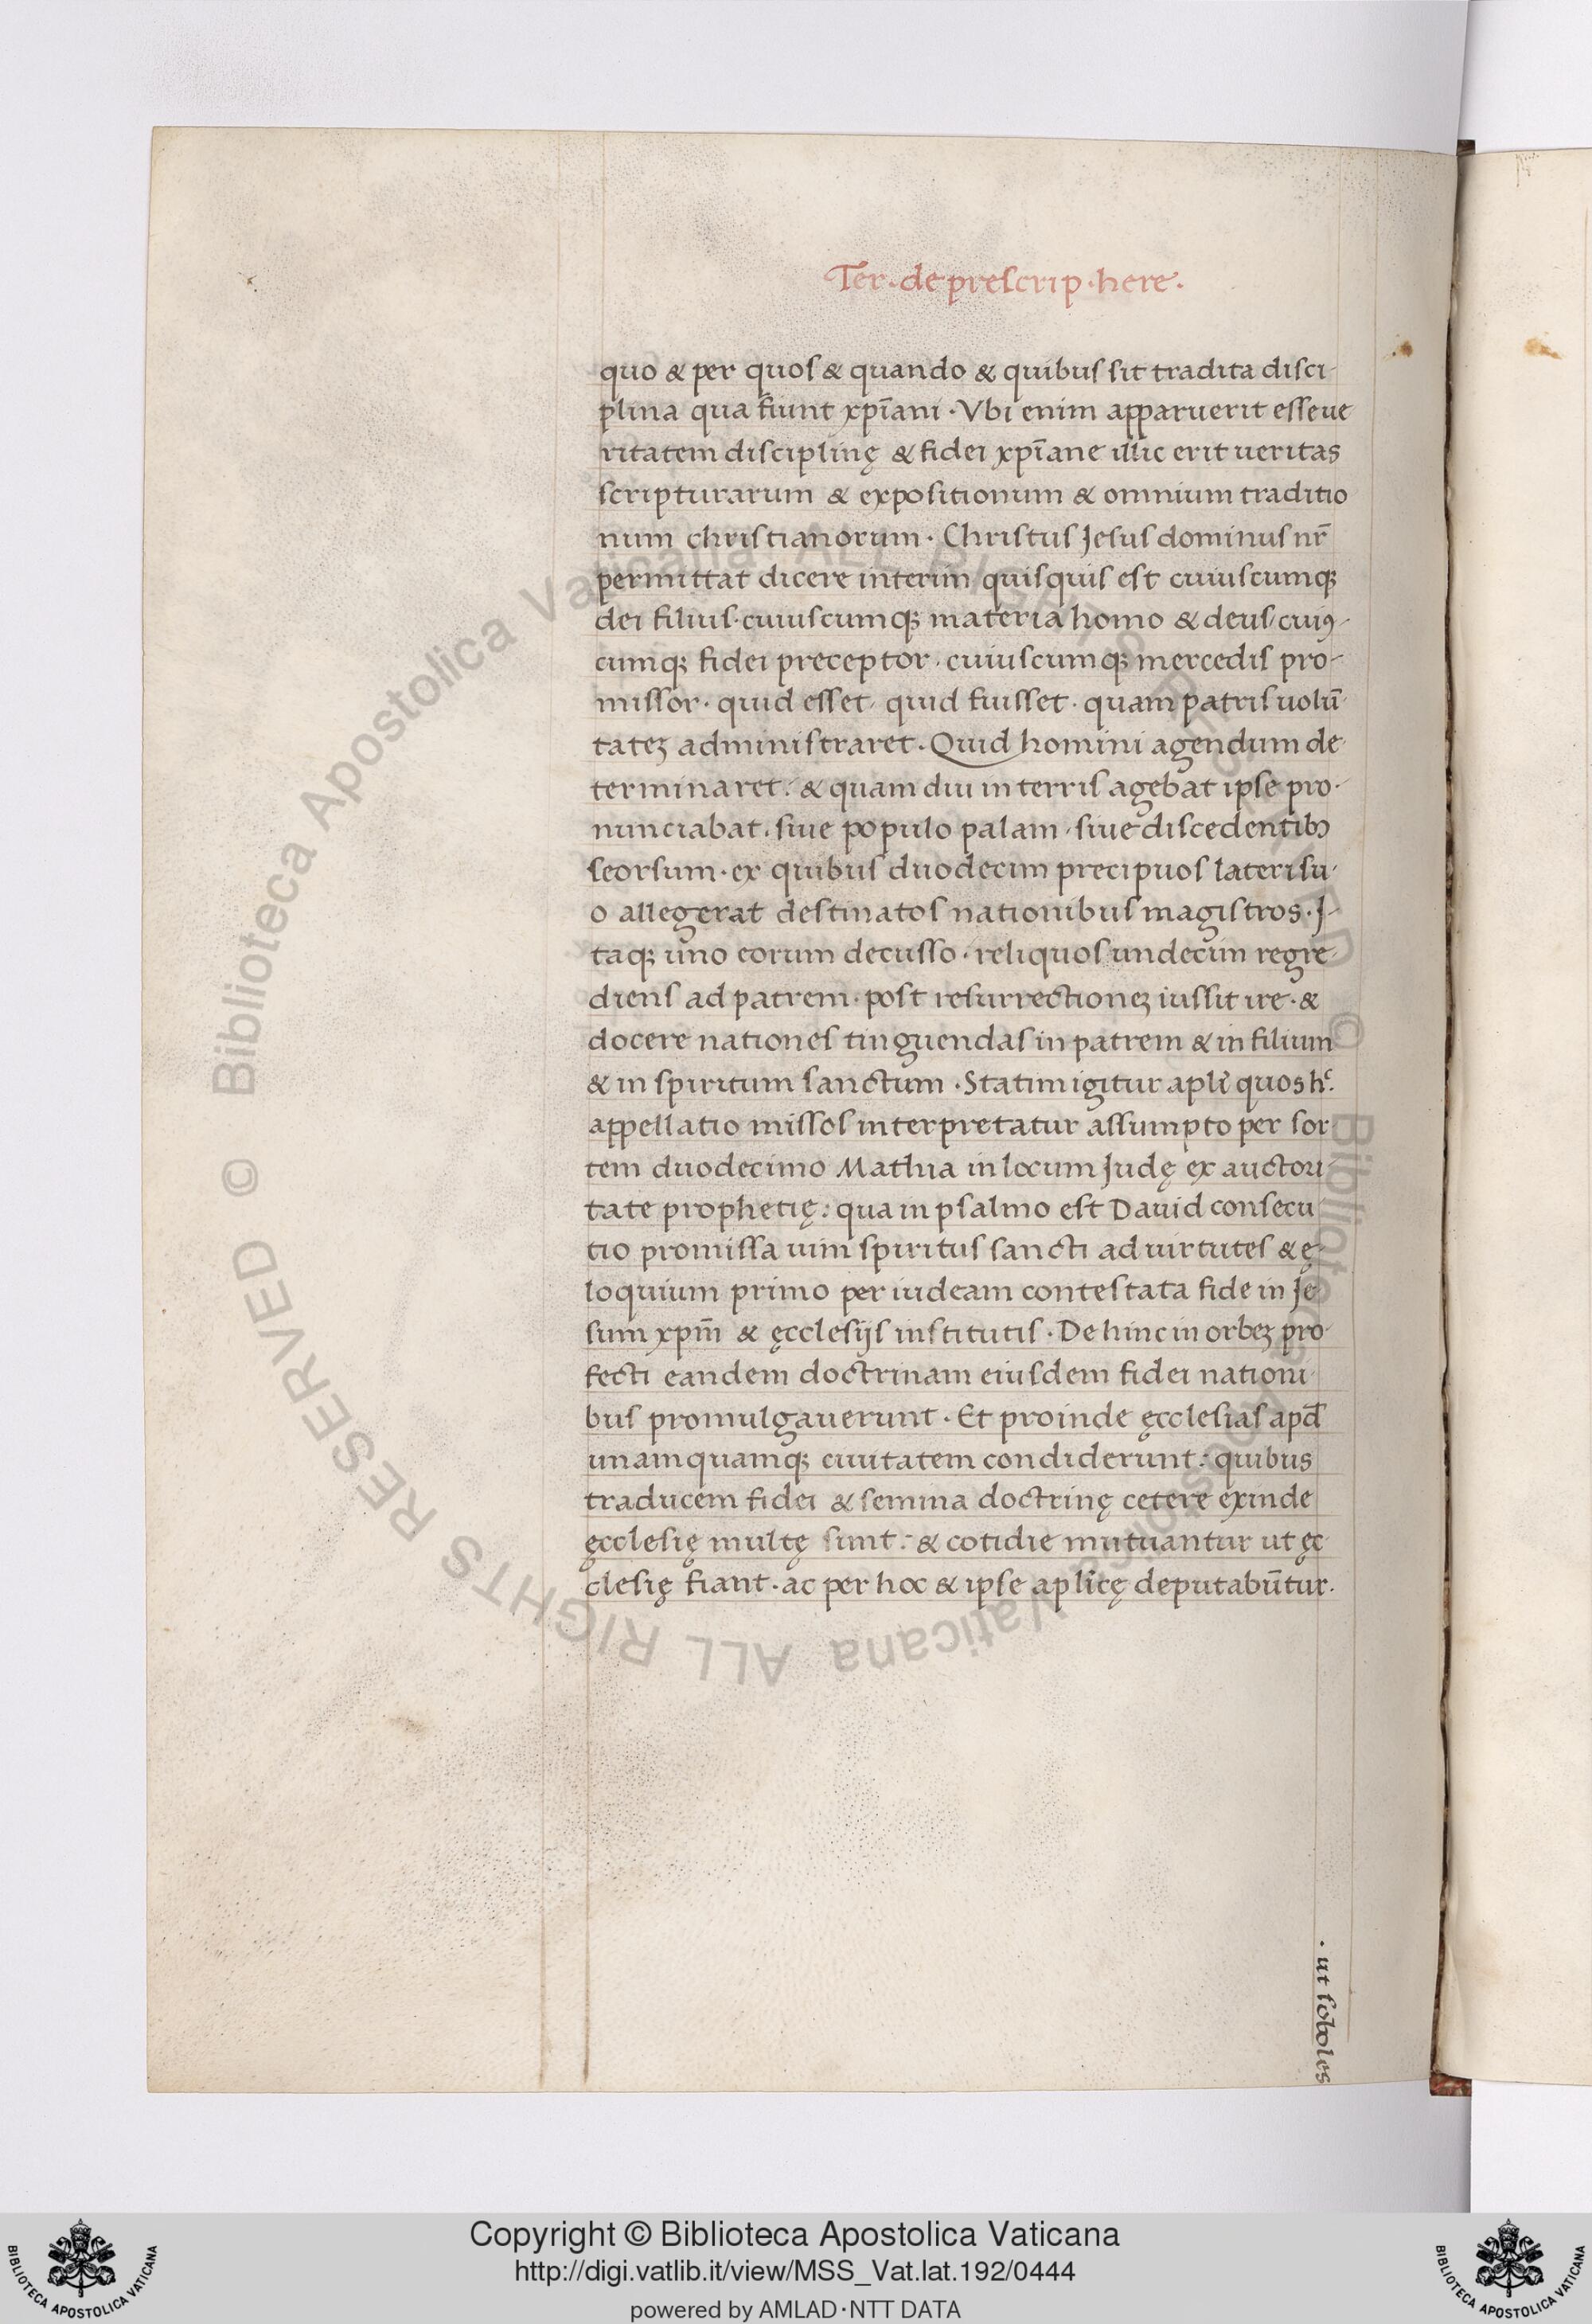 Ter · de prescrip · here ·
quo & per quos & quando & quibus sit tradita disci-
plina qua fiunt xp̄iani · Vbi enim apparuerit esse ue
ritatem disciplinę & fidei xp̄iane illic erit ueritas
scripturarum & expositionum & omnium traditio
num christianorum · Christus Jesus dominus nr̄
permittat dicere interim quisquis est cuiuscumqꝫ
dei filius · cuiuscumqꝫ materia homo & deus / cuiꝰ-
cumqꝫ fidei preceptor · cuiuscumqꝫ mercedis pro-
missor · quid esset · quid fuisset · quam patris uolū-
tateꝫ administraret · Quid homini agendum de-
terminaret : & quam diu in terris agebat ipse pro-
nunciabat · siue populo palam · siue discedentibꝰ
seorsum · ex quibus duodecim precipuos lateri su-
o allegerat destinatos nationibus magistros · J-
taqꝫ uno eorum decusso · reliquos undecim regre-
diens ad patrem · post resurrectioneꝫ iussit ire · &
docere nationes tinguendas in patrem & in filium
& in spiritum sanctum · Statim igitur apl̄i quos hͨ
appellatio missos interpretatur assumpto per sor-
tem duodecimo Mathia in locum Judę ex auctori-
tate prophetię : qua in psalmo est Dauid consecu
tio promissa uim spiritus sancti ad uirtutes & ę-
loquium primo per iudeam contestata fide in Je-
sum xpm̄ & ęcclesijs institutis · De hinc in orbeꝫ pro-
fecti eandem doctrinam eiusdem fidei nationi-
bus promulgauerunt · Et proinde ęcclesias apd̄
unamquamqꝫ ciuitatem condiderunt : quibus
traducem fidei & semina doctrinę cetere exinde
ęcclesię multę sunt : & cotidie mutuantur ut ęc-
clesię fiant · ac per hoc & ipse apl̄icę deputabūtur ·
· ut soboles
© Biblioteca Apostolica Vaticana ALL RIGHTS RESERVED © Biblioteca Apostolica Vaticana ALL RIGHTS RESERVED
Copyright © Biblioteca Apostolica Vaticana
http://digi.vatlib.it/view/MSS_Vat.lat.192/0444
powered by AMLAD·NTT DATA
BIBLIOTECA APOSTOLICA VATICANA
BIBLIOTECA APOSTOLICA VATICANA